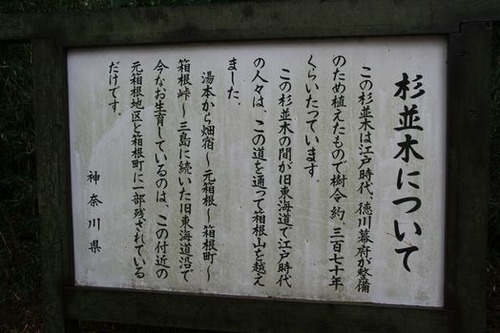 杉並木について
この杉並木は江戸時代、徳川幕府が整備
のため植えたもので樹令約、三百七十年
くらいたっています。
この杉並木の間が旧東海道で江戸時代
の人々は、この道を通って箱根山を越え
ました。
湯本から畑宿～元箱根～箱根町～
箱根峠～三島に続いた旧東海道沿で
今なお生育しているのは、この付近の
元箱根地区と箱根町に一部残されている
だけです。
神奈川県